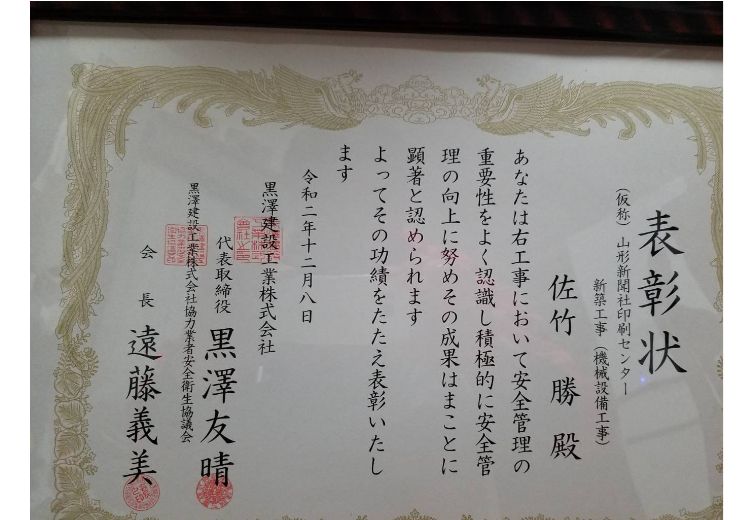 表彰状
(仮称) 山形新聞社印刷センター
新築工事 (機械設備工事)
佐竹 勝 殿
あなたは右工事において安全管理の
重要性をよく認識し積極的に安全管
理の向上に努めその成果はまことに
顕著と認められます
よってその功績をたたえ表彰いたし
ます
令和二年十二月八日
黒澤建設工業株式会社
代表取締役 黒澤友晴
黒澤建設工業株式会社協力業者安全衛生協議会
会長 遠藤義美